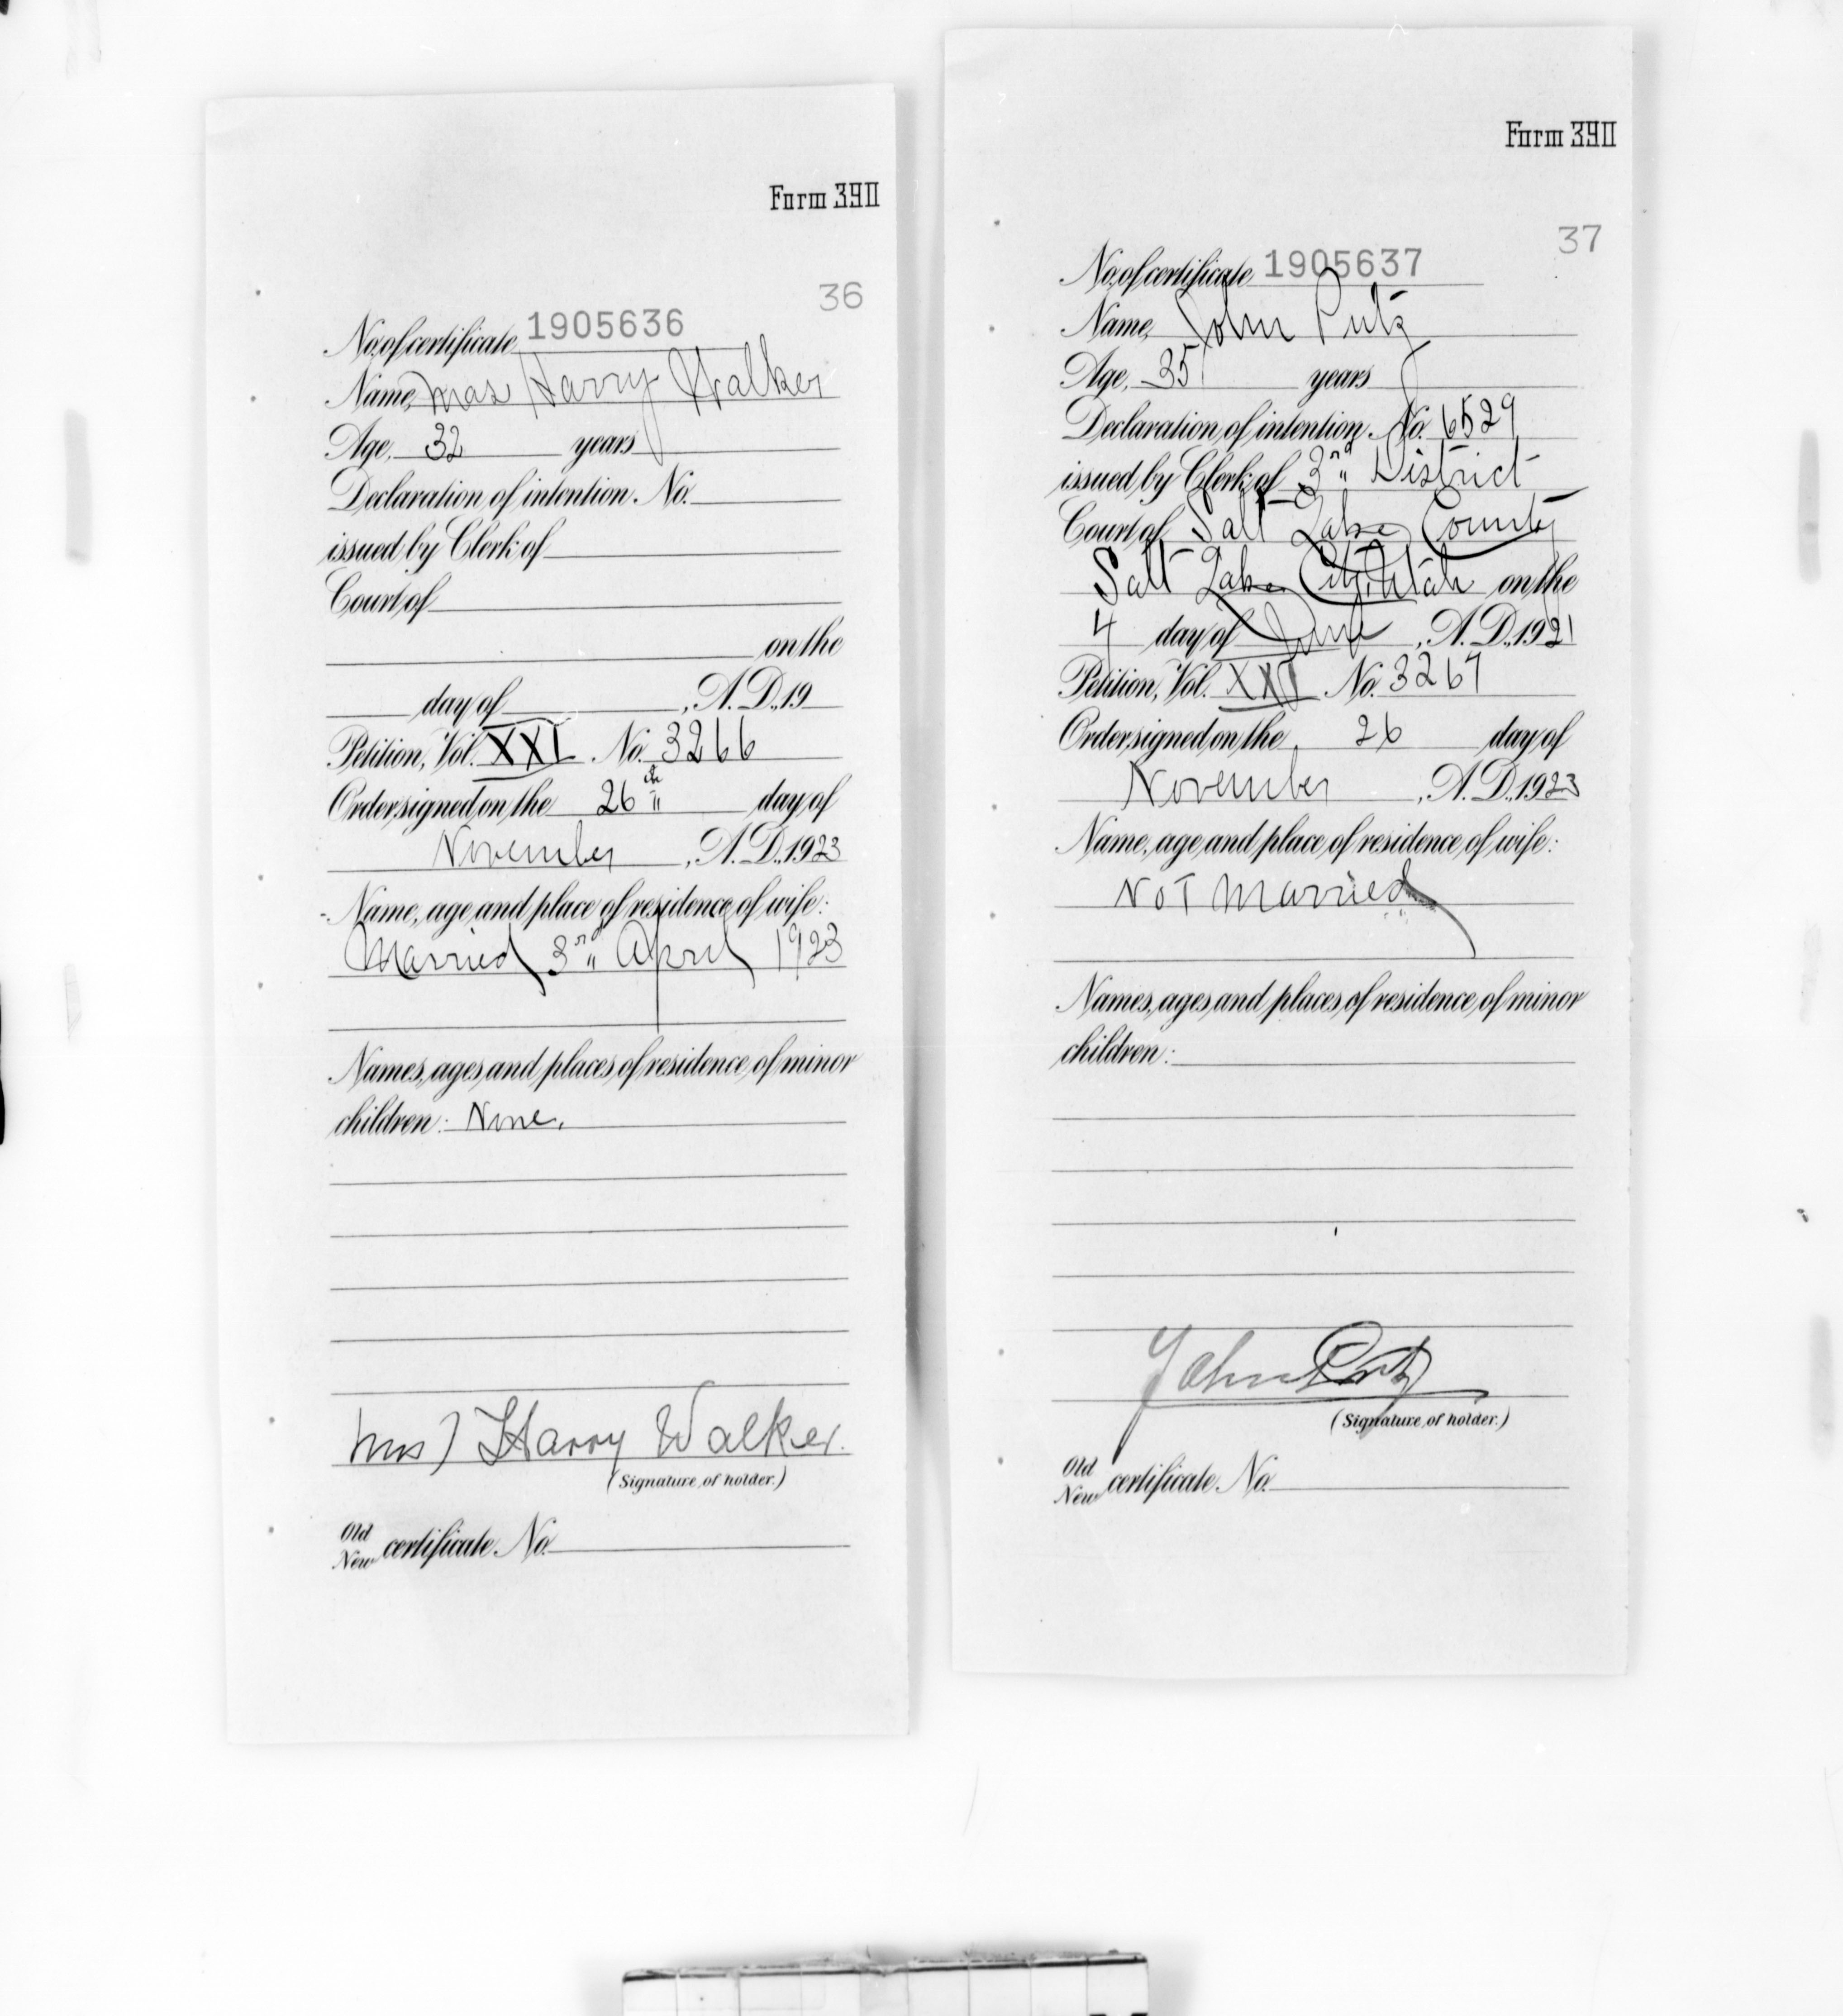 Form 390
36
No. of certificate 1905636
Name, Mrs Harry Walker
Age, 32 years
Declaration of intention No.
issued by Clerk of
Court of
on the
day of , A. D., 19
Petition, Vol. XXI No. 3266
Order signed on the 26th day of
November , A. D., 1923
Name, age, and place of residence of wife:
Married 3rd April 1923
Names, ages, and places of residence of minor
children: None.
Mrs Harry Walker.
(Signature of holder.)
Old
New certificate No.
Form 390
37
No. of certificate 1905637
Name, John Putz
Age, 35 years
Declaration of intention No. 6529
issued by Clerk of 3rd District
Court of Salt Lake County
Salt Lake City, Utah on the
4 day of June , A. D., 1921
Petition, Vol. XXI No. 3267
Order signed on the 26 day of
November , A. D., 1923
Name, age, and place of residence of wife:
NOT Married
Names, ages, and places of residence of minor
children:
John Putz
(Signature of holder.)
Old
New certificate No.